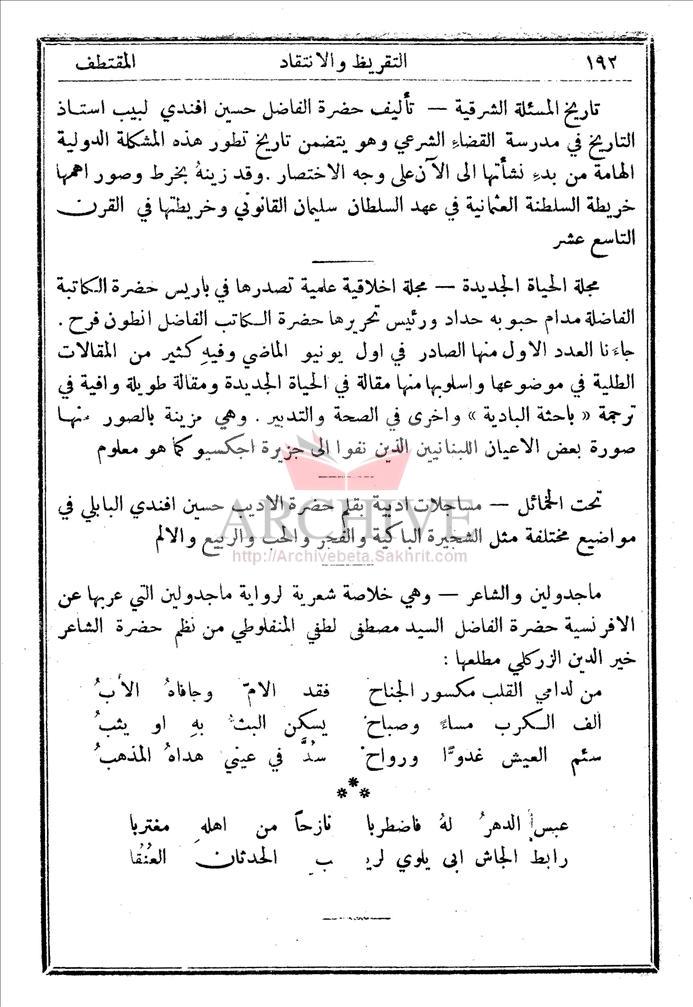 ١٩٢ التقريظ والانتقاد المقتطف
تاريخ المسئلة الشرقية — تأليف حضرة الفاضل حسين افندي لبيب استاذ
التاريخ في مدرسة القضاء الشرعي وهو يتضمن تاريخ تطور هذه المشكلة الدولية
الهامة من بدء نشأتها الى الآن على وجه الاختصار . وقد زينهُ بخرط وصور اهمها
خريطة السلطنة العثمانية في عهد السلطان سليمان القانوني وخريطتها في القرن
التاسع عشر
مجلة الحياة الجديدة — مجلة اخلاقية علمية تصدرها في باريس حضرة الكاتبة
الفاضلة مدام حبوبه حداد ورئيس تحريرها حضرة الكاتب الفاضل انطون فرح .
جاءنا العدد الاول منها الصادر في اول يونيو الماضي وفيهِ كثير من المقالات
الطلية في موضوعها واسلوبها منها مقالة في الحياة الجديدة ومقالة طويلة وافية في
ترجمة « باحثة البادية » واخرى في الصحة والتدبير . وهي مزينة بالصور منها
صورة بعض الاعيان اللبنانيين الذين نفوا الى جزيرة اجكسيو كما هو معلوم
تحت الخمائل — مساجلات ادبية بقلم حضرة الاديب حسين افندي البابلي في
مواضيع مختلفة مثل الشجيرة الباكية والفجر والحب والربيع والالم
ARCHIVE
http://Archivebeta.Sakhrit.com
ماجدولين والشاعر — وهي خلاصة شعرية لرواية ماجدولين التي عربها عن
الافرنسية حضرة الفاضل السيد مصطفى لطفي المنفلوطي من نظم حضرة الشاعر
خير الدين الزركلي مطلعها :
من لدامي القلب مكسور الجناح فقد الامّ وجافاهُ الأبُ
الف الكرب مساءً وصباح يسكن البثُّ بهِ او يثبُ
سئم العيش غدوًّا ورواح سُدَّ في عيني هداهُ المذهبُ
***
عبس الدهرُ لهُ فاضطربا نازحاً من اهلهِ مغتربا
رابط الجاش ابى يلوي لريب الحدثان العنُقا